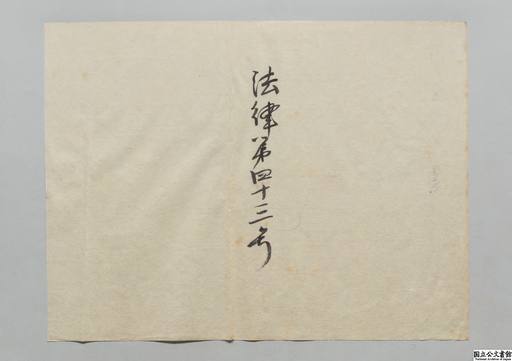 法律第四十三号
国立公文書館
National Archives of Japan